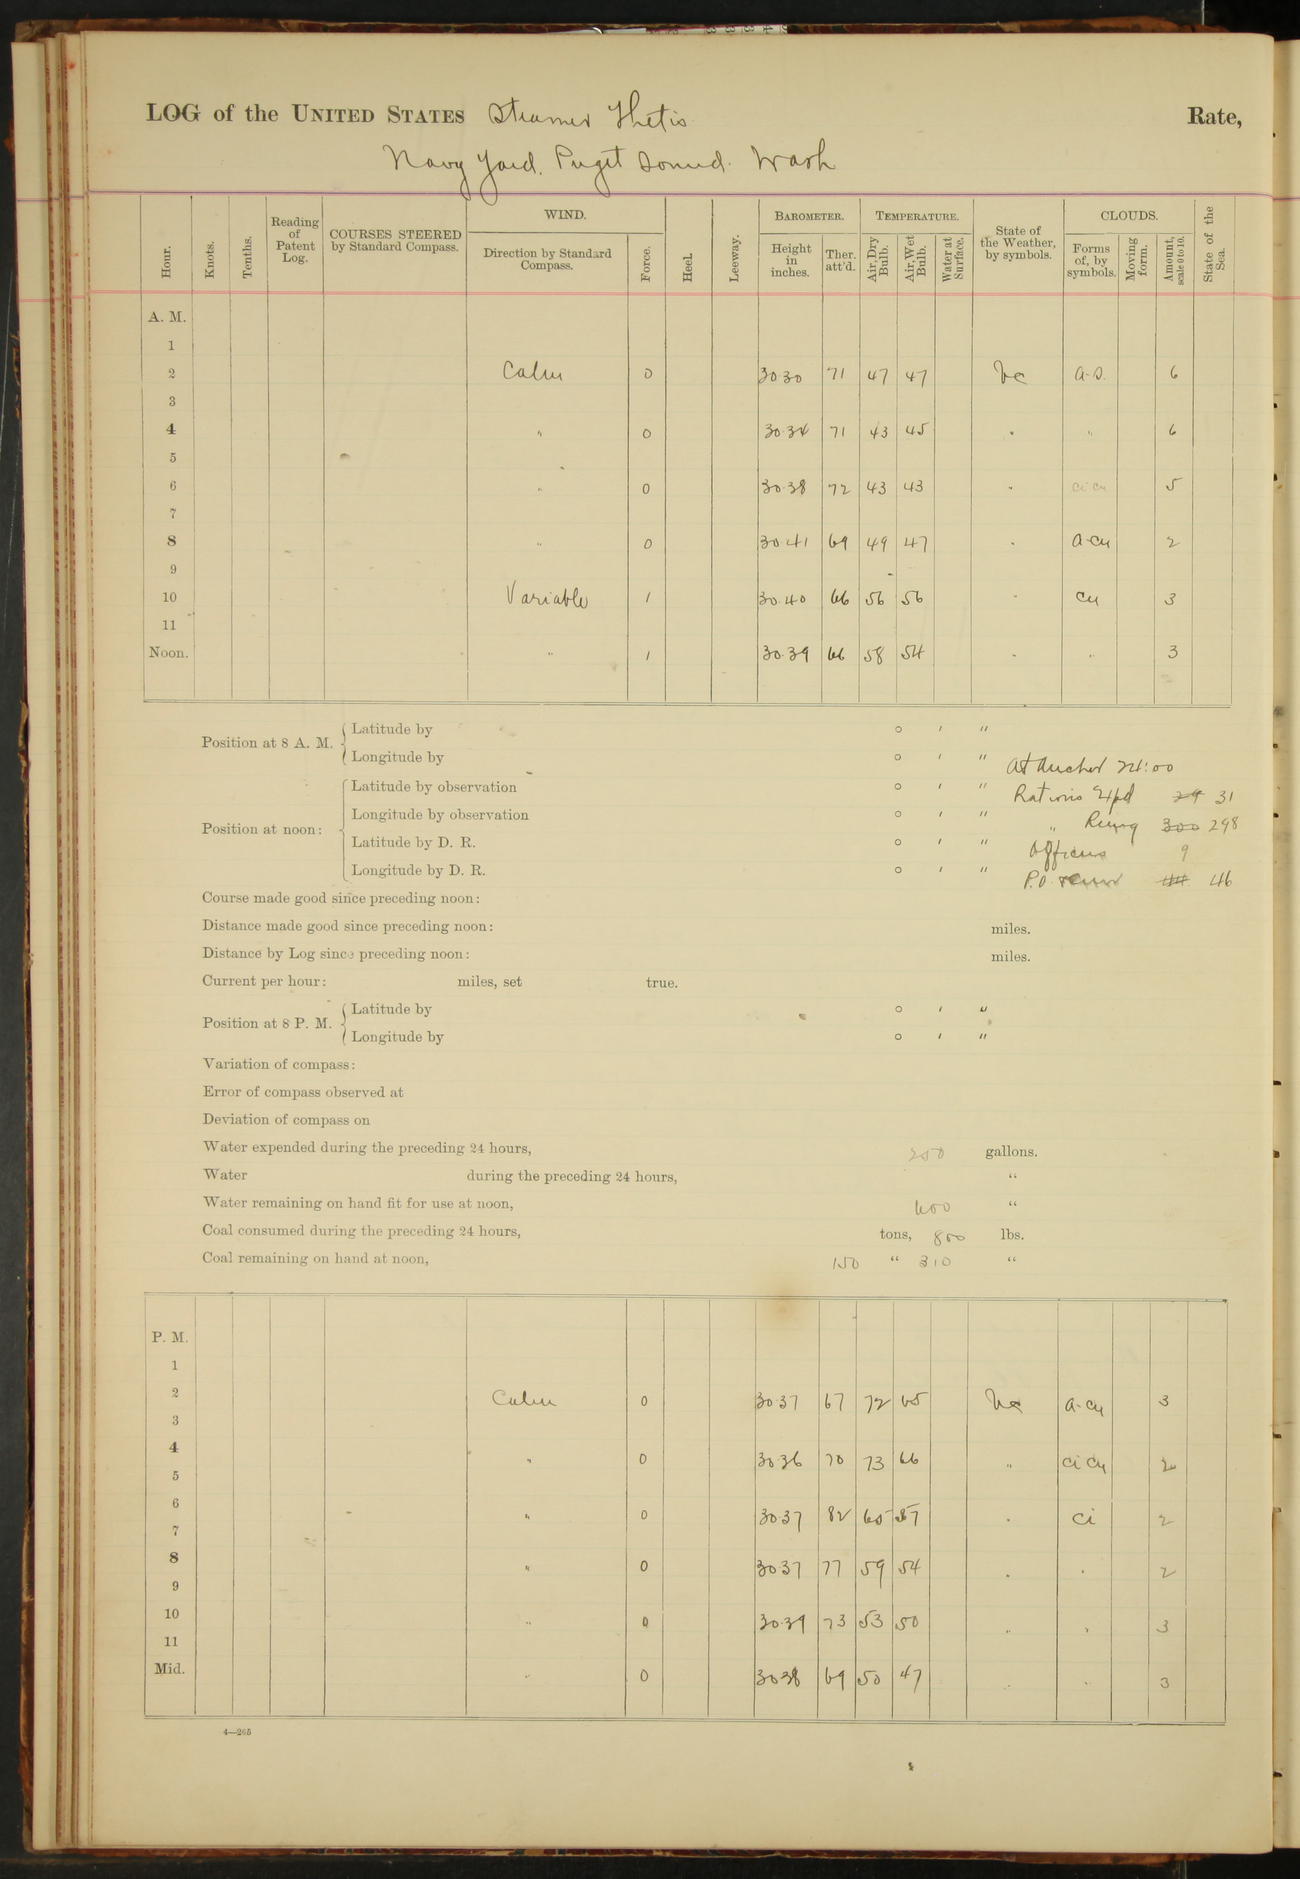 LOG of the UNITED STATES Steamer Thetis Rate,
Navy Yard. Puget Sound. Wash
Hour. Knots. Tenths. Reading of Patent Log. COURSES STEERED by Standard Compass. WIND. Direction by Standard Compass. Force. Heel. Leeway. BAROMETER. Height in inches. Ther. att'd. TEMPERATURE. Air, Dry Bulb. Air, Wet Bulb. Water at Surface. State of the Weather, by symbols. CLOUDS. Forms of, by symbols. Moving form. Amount, scale 0 to 10. State of the Sea.
A. M.
1
2 Calm 0 30.30 71 47 47 bc a-s. 6
3
4 " 0 30.34 71 43 45 " " 6
5
6 " 0 30.38 72 43 43 " ci cu 5
7
8 " 0 30.41 69 49 47 " a-cu 2
9
10 Variable 1 30.40 66 56 56 " cu 3
11
Noon. " 1 30.39 66 58 54 " " 3
Position at 8 A. M. Latitude by ° ′ ″
Longitude by ° ′ ″
At Anchor 24:00
Position at noon: Latitude by observation ° ′ ″ Rations 29 31
Longitude by observation ° ′ ″ " 300 298
Latitude by D. R. ° ′ ″ Officers 9
Longitude by D. R. ° ′ ″ P.O. 44 46
Course made good since preceding noon:
Distance made good since preceding noon: miles.
Distance by Log since preceding noon: miles.
Current per hour: miles, set true.
Position at 8 P. M. Latitude by ° ′ ″
Longitude by ° ′ ″
Variation of compass:
Error of compass observed at
Deviation of compass on
Water expended during the preceding 24 hours, 250 gallons.
Water during the preceding 24 hours, "
Water remaining on hand fit for use at noon, 600 "
Coal consumed during the preceding 24 hours, tons, 800 lbs.
Coal remaining on hand at noon, 150 " 310 "
P. M.
1
2 Calm 0 30 37 67 72 65 bc a-cu 3
3
4 " 0 30.36 70 73 66 " ci cu 2
5
6 " 0 30.37 82 65 57 " ci 2
7
8 " 0 30 37 77 59 54 " " 2
9
10 " 0 30.39 73 53 50 " " 3
11
Mid. " 0 30 38 69 50 47 " " 3
4—265